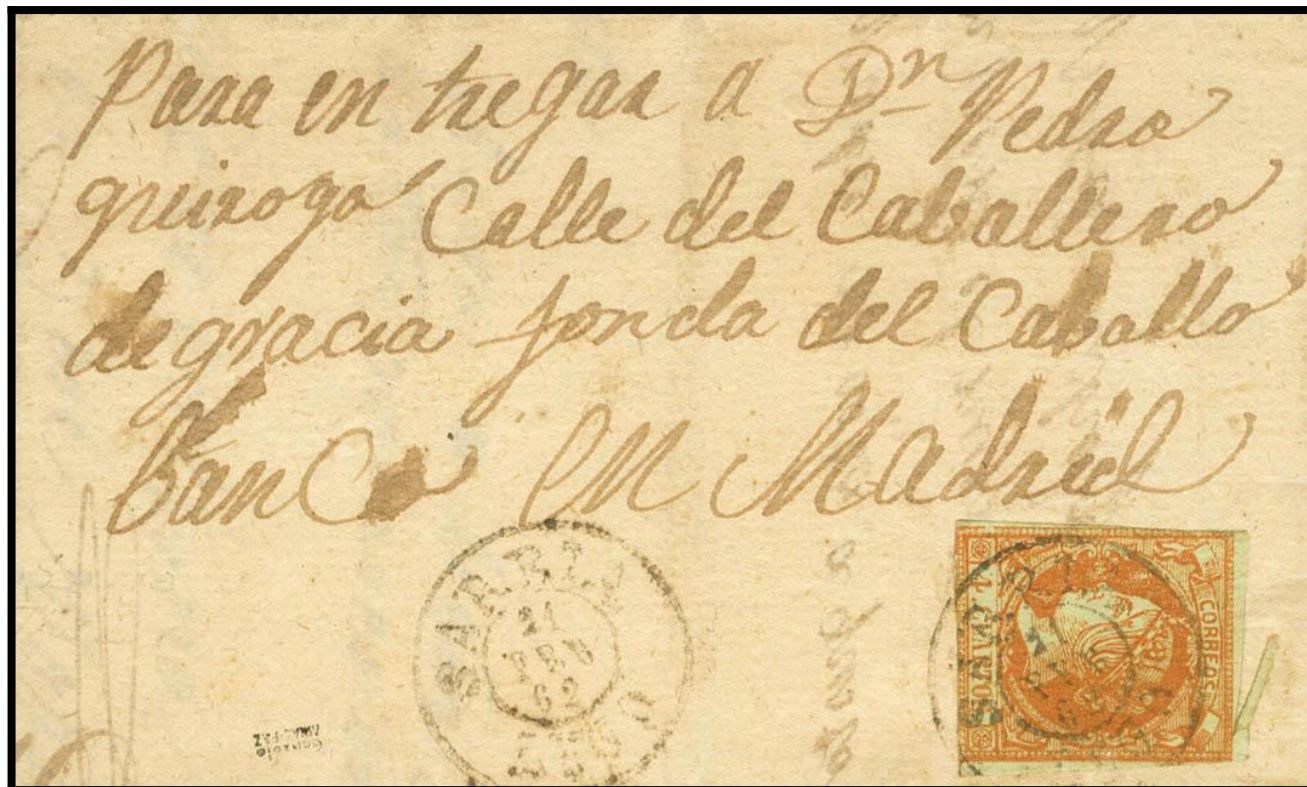 Para en tregar a Dn Pedro
quiroga Calle del Caballero
de gracia fonda del Caballo
banCo en Madrid
SARRIA
21
FEB
62
LUGO
CORREOS
4 CUARTOS
SARRIA